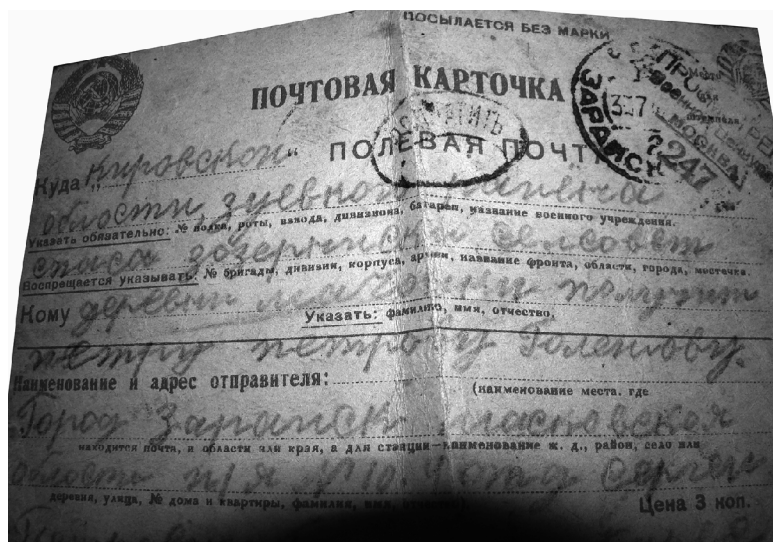 ПОСЫЛАЕТСЯ БЕЗ МАРКИ
ПОЧТОВАЯ КАРТОЧКА
ПОЛЕВАЯ ПОЧТ
ЗАРАЙСК
МОСКВА
247
Куда „Кировской“
области, зуевкой
Указать обязательно: № полка, роты, взвода, дивизиона, батареи, название военного учреждения.
спаса сельсовет
Воспрещается указывать: № бригады, дивизии, корпуса, армии, название фронта, области, города, местечка.
Кому деревни получит
Указать: фамилию, имя, отчество.
петру петрову
Наименование и адрес отправителя:
(наименование места, где
Город Зарайск масковская
находится почта, и области или края, а для станции—наименование ж. д., район, село или
п/я №10
деревня, улица, № дома и квартиры, фамилия, имя,
Цена 3 коп.